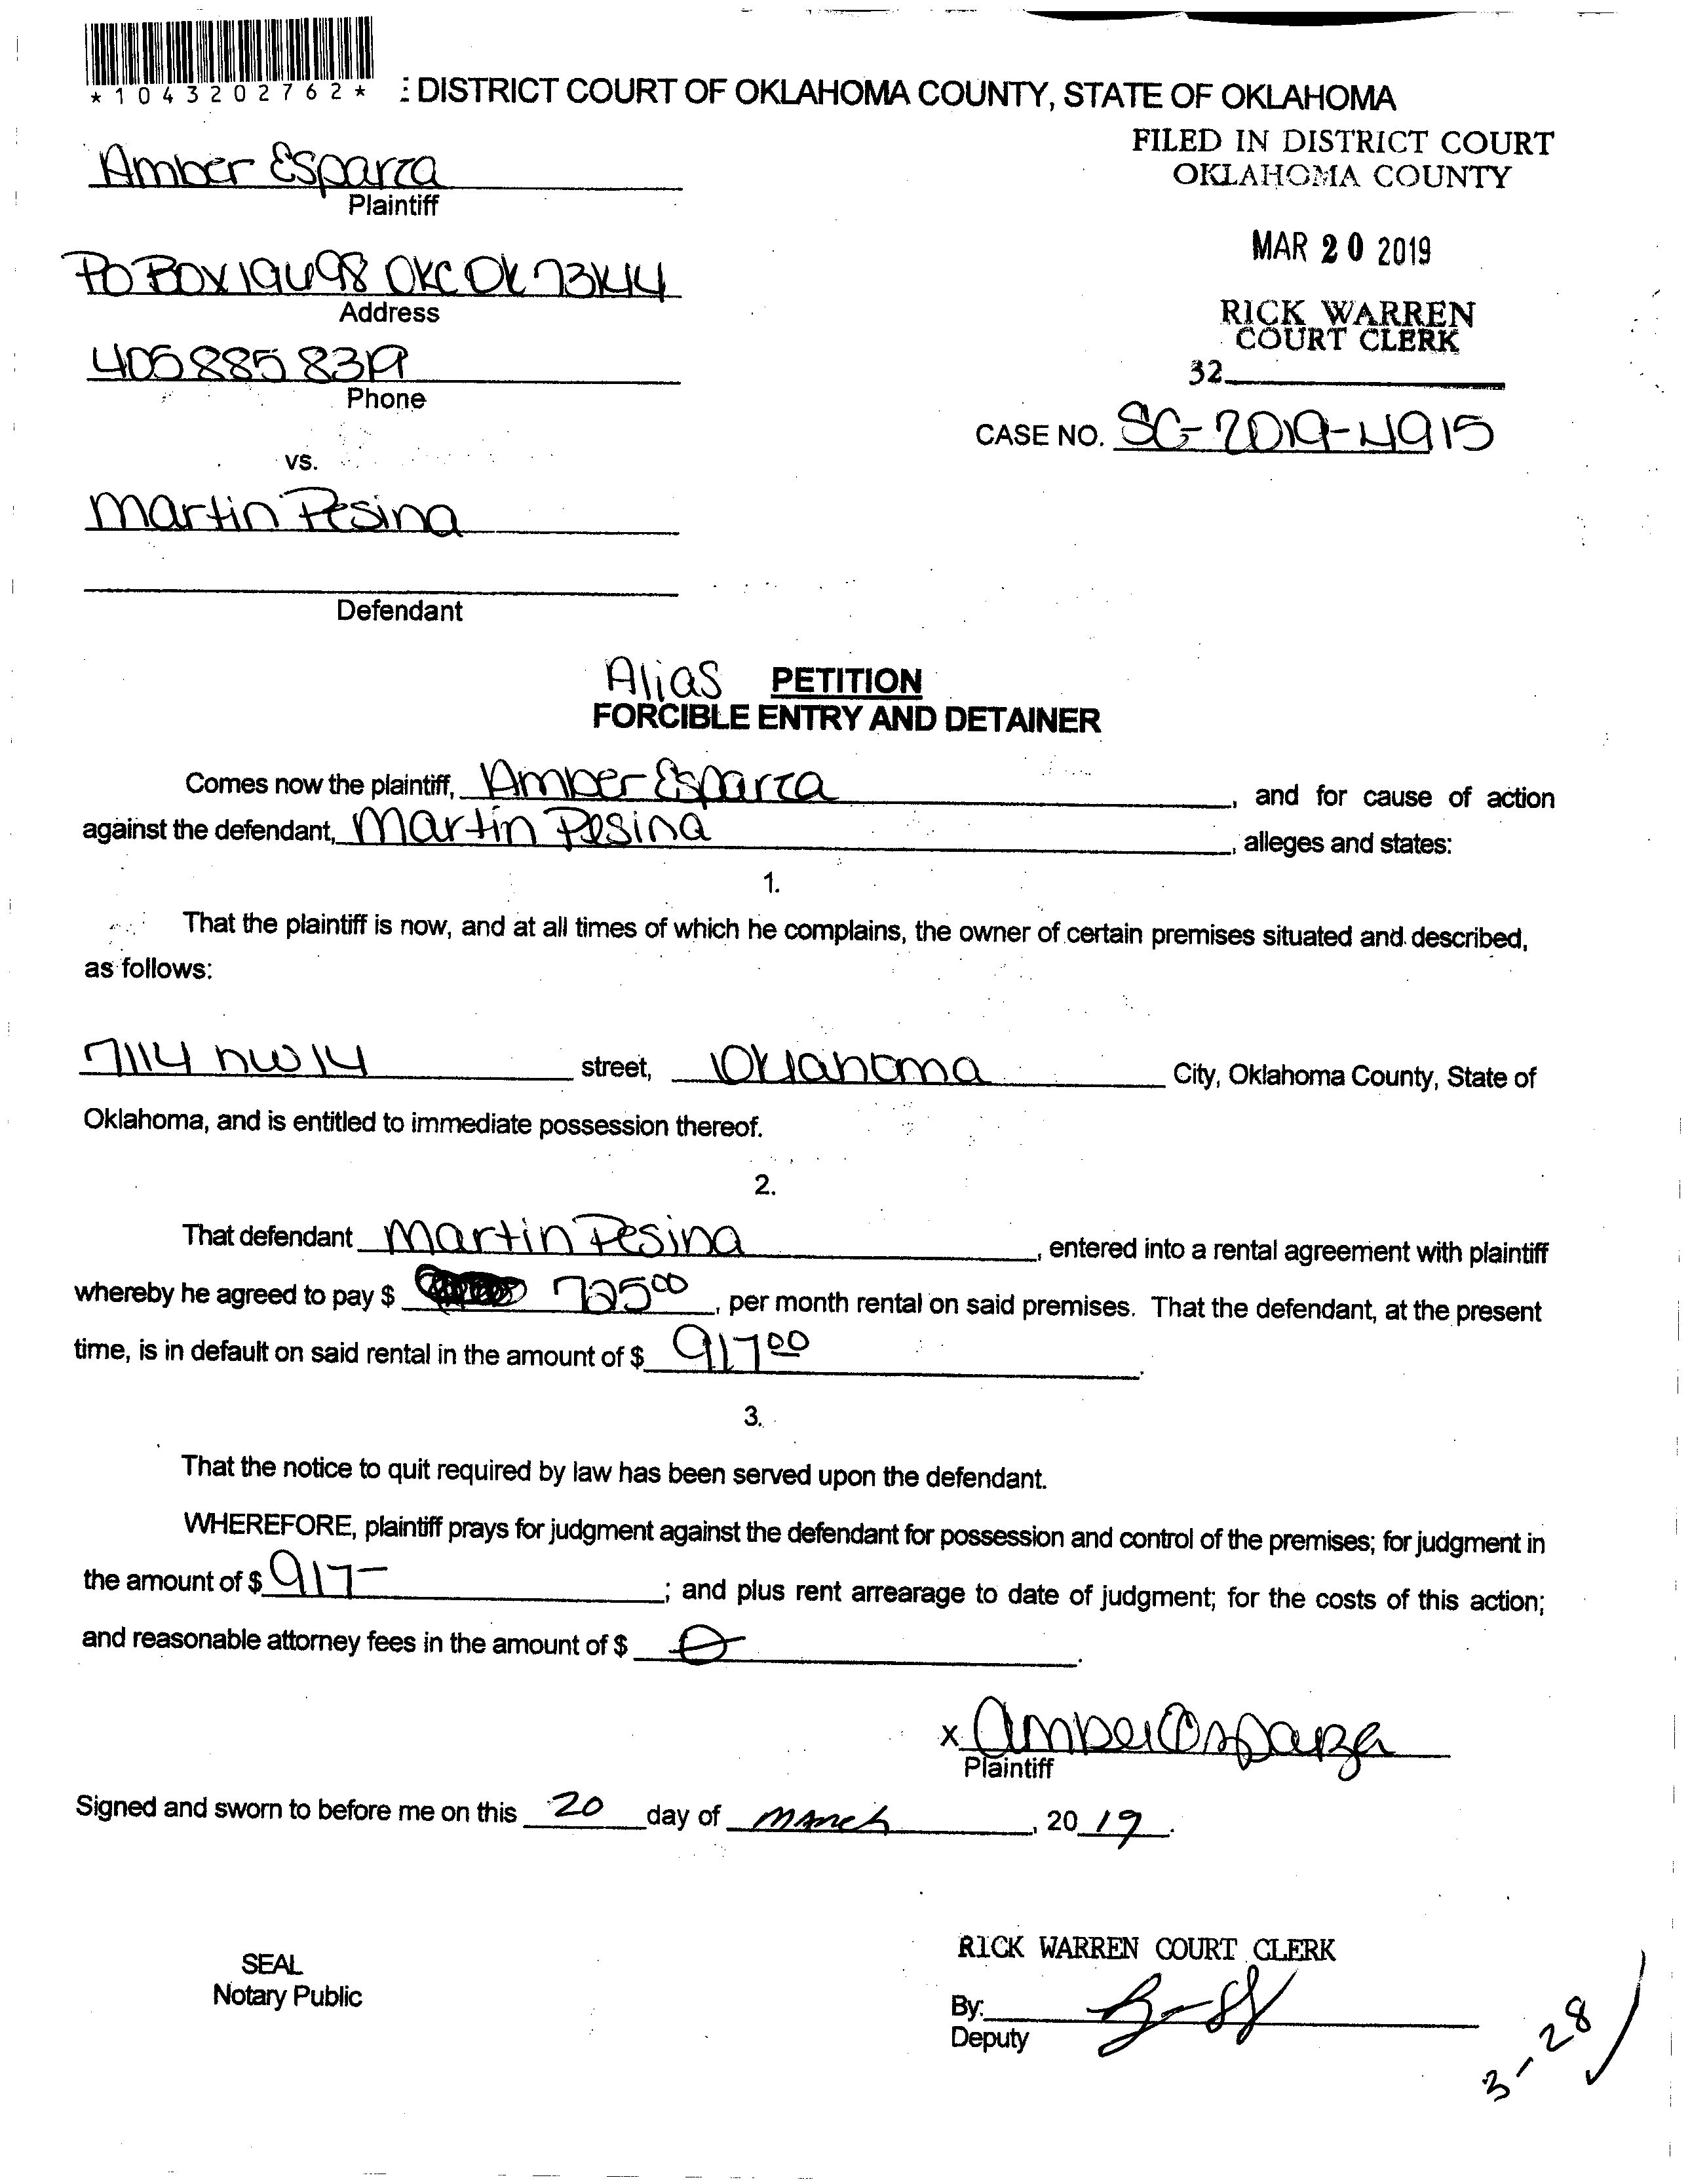 *1043202762*
: DISTRICT COURT OF OKLAHOMA COUNTY, STATE OF OKLAHOMA
FILED IN DISTRICT COURT
OKLAHOMA COUNTY
Amber Esparza
Plaintiff
MAR 20 2019
PO BOX 19498 OKC OK 73144
Address
RICK WARREN
COURT CLERK
405 885 8319
Phone
32
CASE NO. SC-2019-4915
vs.
Martin Pesina
Defendant
Alias PETITION
FORCIBLE ENTRY AND DETAINER
Comes now the plaintiff, Amber Esparza, and for cause of action
against the defendant, Martin Pesina, alleges and states:
1.
That the plaintiff is now, and at all times of which he complains, the owner of certain premises situated and described,
as follows:
7114 NW 14 street, Oklahoma City, Oklahoma County, State of
Oklahoma, and is entitled to immediate possession thereof.
2.
That defendant Martin Pesina, entered into a rental agreement with plaintiff
whereby he agreed to pay $ 725 00, per month rental on said premises. That the defendant, at the present
time, is in default on said rental in the amount of $ 917 00.
3.
That the notice to quit required by law has been served upon the defendant.
WHEREFORE, plaintiff prays for judgment against the defendant for possession and control of the premises; for judgment in
the amount of $ 917-; and plus rent arrearage to date of judgment; for the costs of this action;
and reasonable attorney fees in the amount of $ 0.
x Amber Esparza
Plaintiff
Signed and sworn to before me on this 20 day of March, 20 19.
RICK WARREN COURT CLERK
SEAL
Notary Public
By:
Deputy
3-28